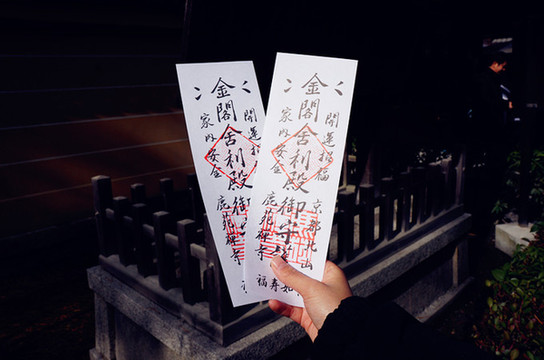 金閣舎利殿御
家内安全
鹿苑禅寺
開運招福
京都北山
金閣舎利殿御守
家内安全
鹿苑禅寺
福寿如